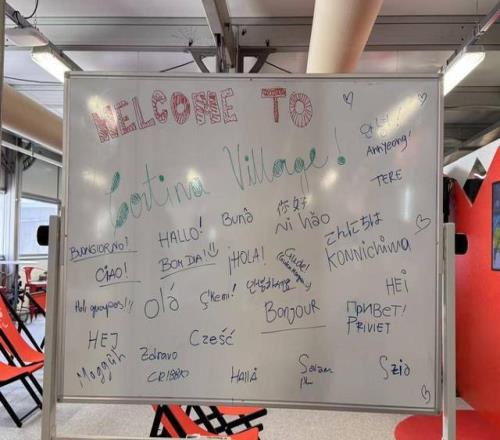 WELCOME TO
Cortina Village!
안녕!
Annyeong!
TERE
BUONGIORNO!
CIAO!
HALLO!
BOM DIA!
Bună
你好
Ni hǎo
¡HOLA!
こんにちは
KONNICHIWA
Hola guapos!!!
Olá
Ç'kemi!
안녕하세요
BONJOUR
HEI
ПРИВЕТ!
PRIVIET
HEJ
Zdravo
Cześć
HALLÅ
Salam